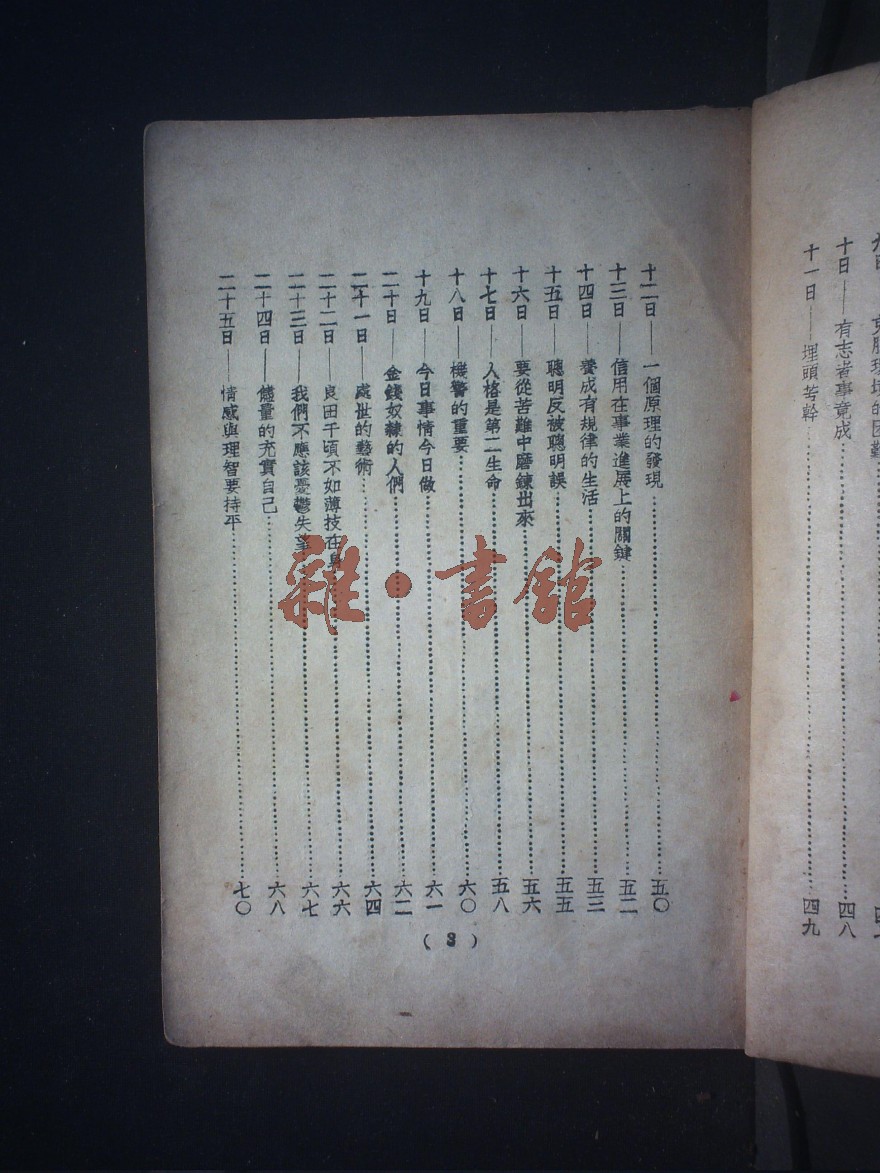 十日——有志者事竟成……四八
十一日——埋頭苦幹……四九
十二日——一個原理的發現……五〇
十三日——信用在事業進展上的關鍵……五二
十四日——養成有規律的生活……五三
十五日——聰明反被聰明誤……五五
十六日——要從苦難中磨鍊出來……五六
十七日——人格是第二生命……五八
十八日——機警的重要……六〇
十九日——今日事情今日做……六一
二十日——金錢奴隸的人們……六二
二十一日——處世的藝術……六四
二十二日——良田千頃不如薄技在身……六六
二十三日——我們不應該憂鬱失望……六七
二十四日——儘量的充實自己……六八
二十五日——情感與理智要持平……七〇
(3)
雜·書館